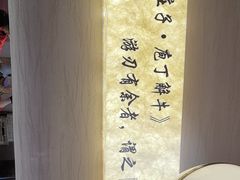 子·庖丁解牛》
游刃有余者，谓之